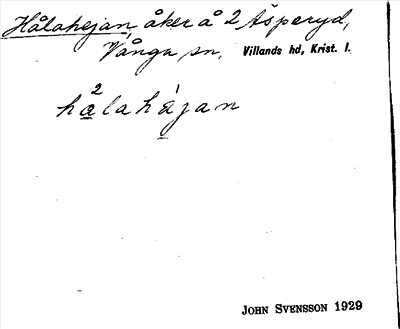 Hålahejan, åker å 2 Äsperyd,
Vånga sn, Villands hd, Krist. l.
hålahäjan
JOHN SVENSSON 1929